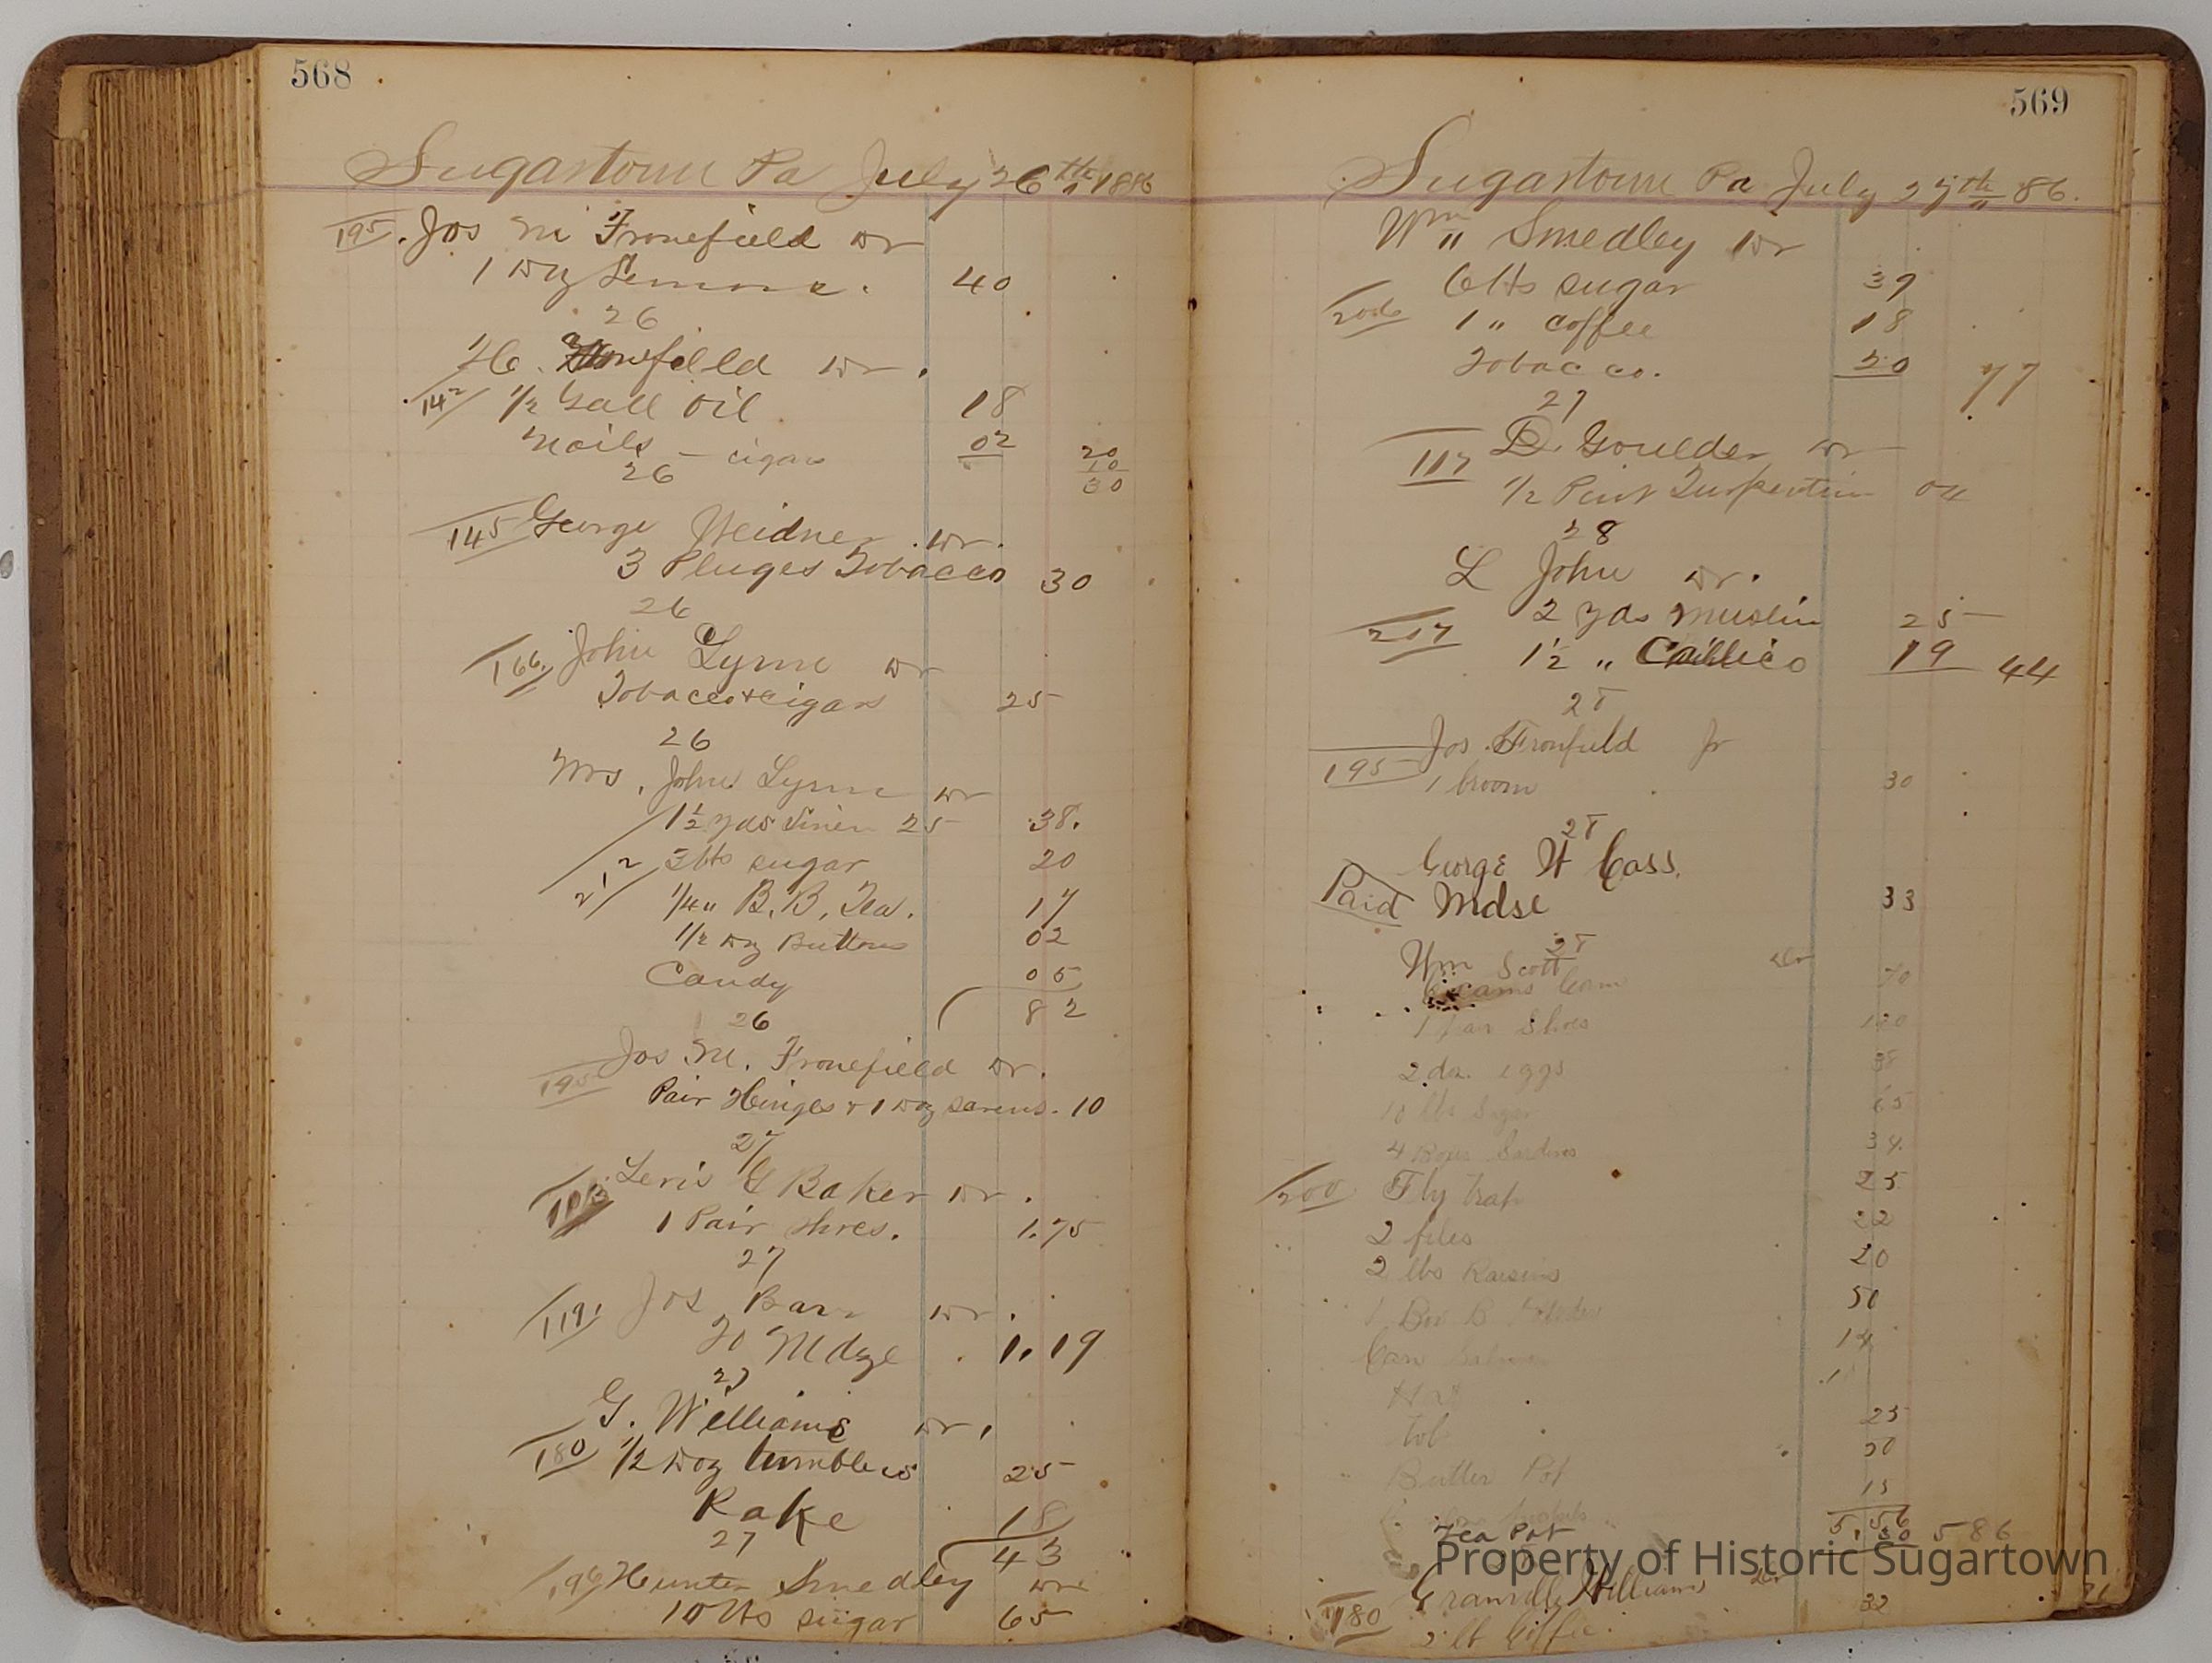 568
Sugartown Pa July 26th 1886
195 Jos M Fronefield Dr
1 Doz Lemons. 40
26
H. Fronfield Dr.
142 1/2 Gall Oil 18
Nails - cigars 02 20
10
26 30
145 George Weidner Dr.
3 Pluges Tobacco 30
26
166 John Lynn Dr
Tobacco & cigars 25
26
Mrs. John Lynn Dr
1 1/2 yds Linen 25 38.
212 3 lbs sugar 20
1/4 " B. B. Tea. 17
1/2 Doz Buttons 02
Candy 05
82
26
195 Jos M. Fronefield Dr.
Pair Hinges & 1 Doz screws. 10
27
103 Levis G Baker Dr.
1 Pair Shoes. 1.75
27
119 Jos Barr Dr.
To Mdze 1.19
27
G. Williams Dr.
180 1/2 Doz tumblers 25
Rake 18
27 43
196 Hunter Smedley Dr
10 lbs sugar 65
569
Sugartown Pa July 27th 86.
Wm Smedley Dr
6 lbs sugar 39
206 1 " coffee 18
Tobacco. 20 77
27
117 D. Goulder Dr
1/2 Pint Turpentine 04
28
L John Dr.
2 yds Muslin 25
217 1 1/2 " Callico 19 44
28
Jos. Fronfield Jr
195 1 broom 30
28
George W Cass.
Paid Mdse 33
28
Wm Scott Dr
70
1 pair Shoes
2 dz. eggs 38
10 lbs Sugar 65
4 Boxes Sardines 34.
200 Fly trap 25
2 files 22
2 lbs Raisins 20
1 Box B 50
Can Salmon 14
Hat
tob 25
50
Butter Pot
15
5.56
Tea Pot 30 586
Granville Williams Dr
180 2 lb Coffee. 32
Property of Historic Sugartown